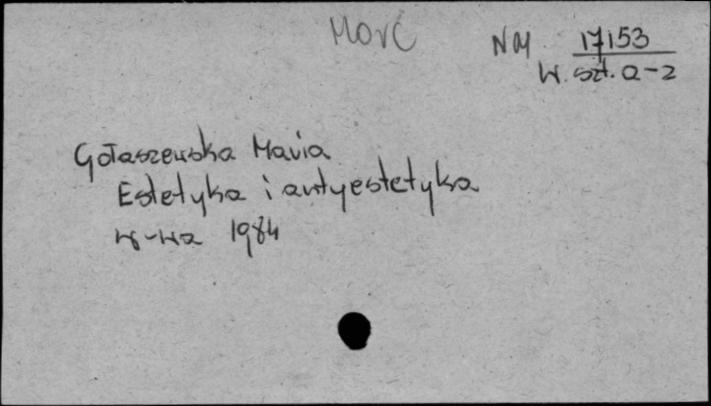 NM 17153
W. szt. a-2
Gołaszewska Maria
Estetyka i antyestetyka
W-wa 1984